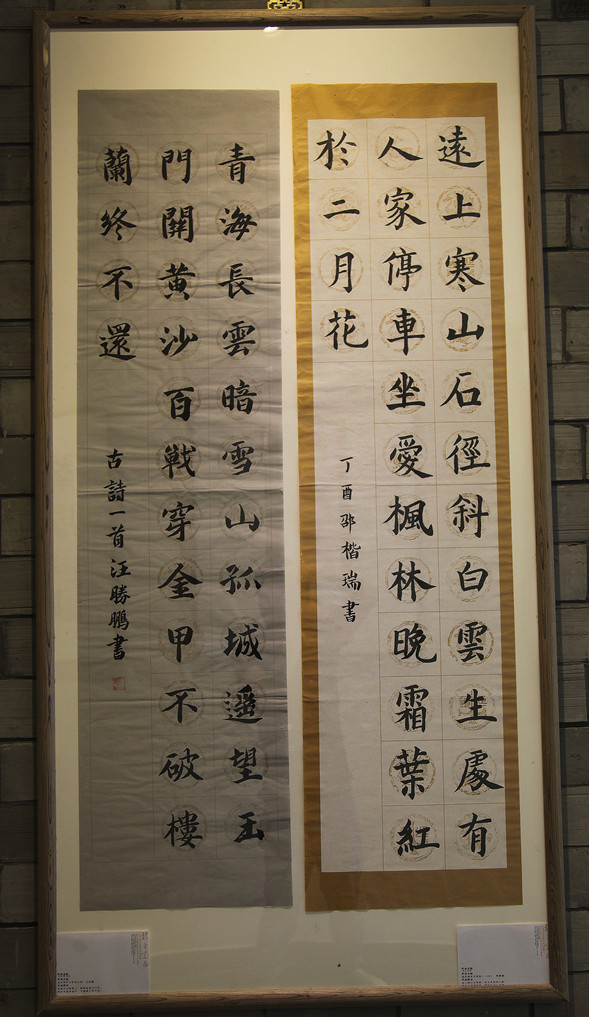 遠上寒山石徑斜白雲生處有
人家停車坐愛楓林晚霜葉紅
於二月花
丁酉邵楷瑞書
青海長雲暗雪山孤城遥望玉
門關黃沙百戰穿金甲不破樓
蘭終不還
古詩一首汪勝鵬書